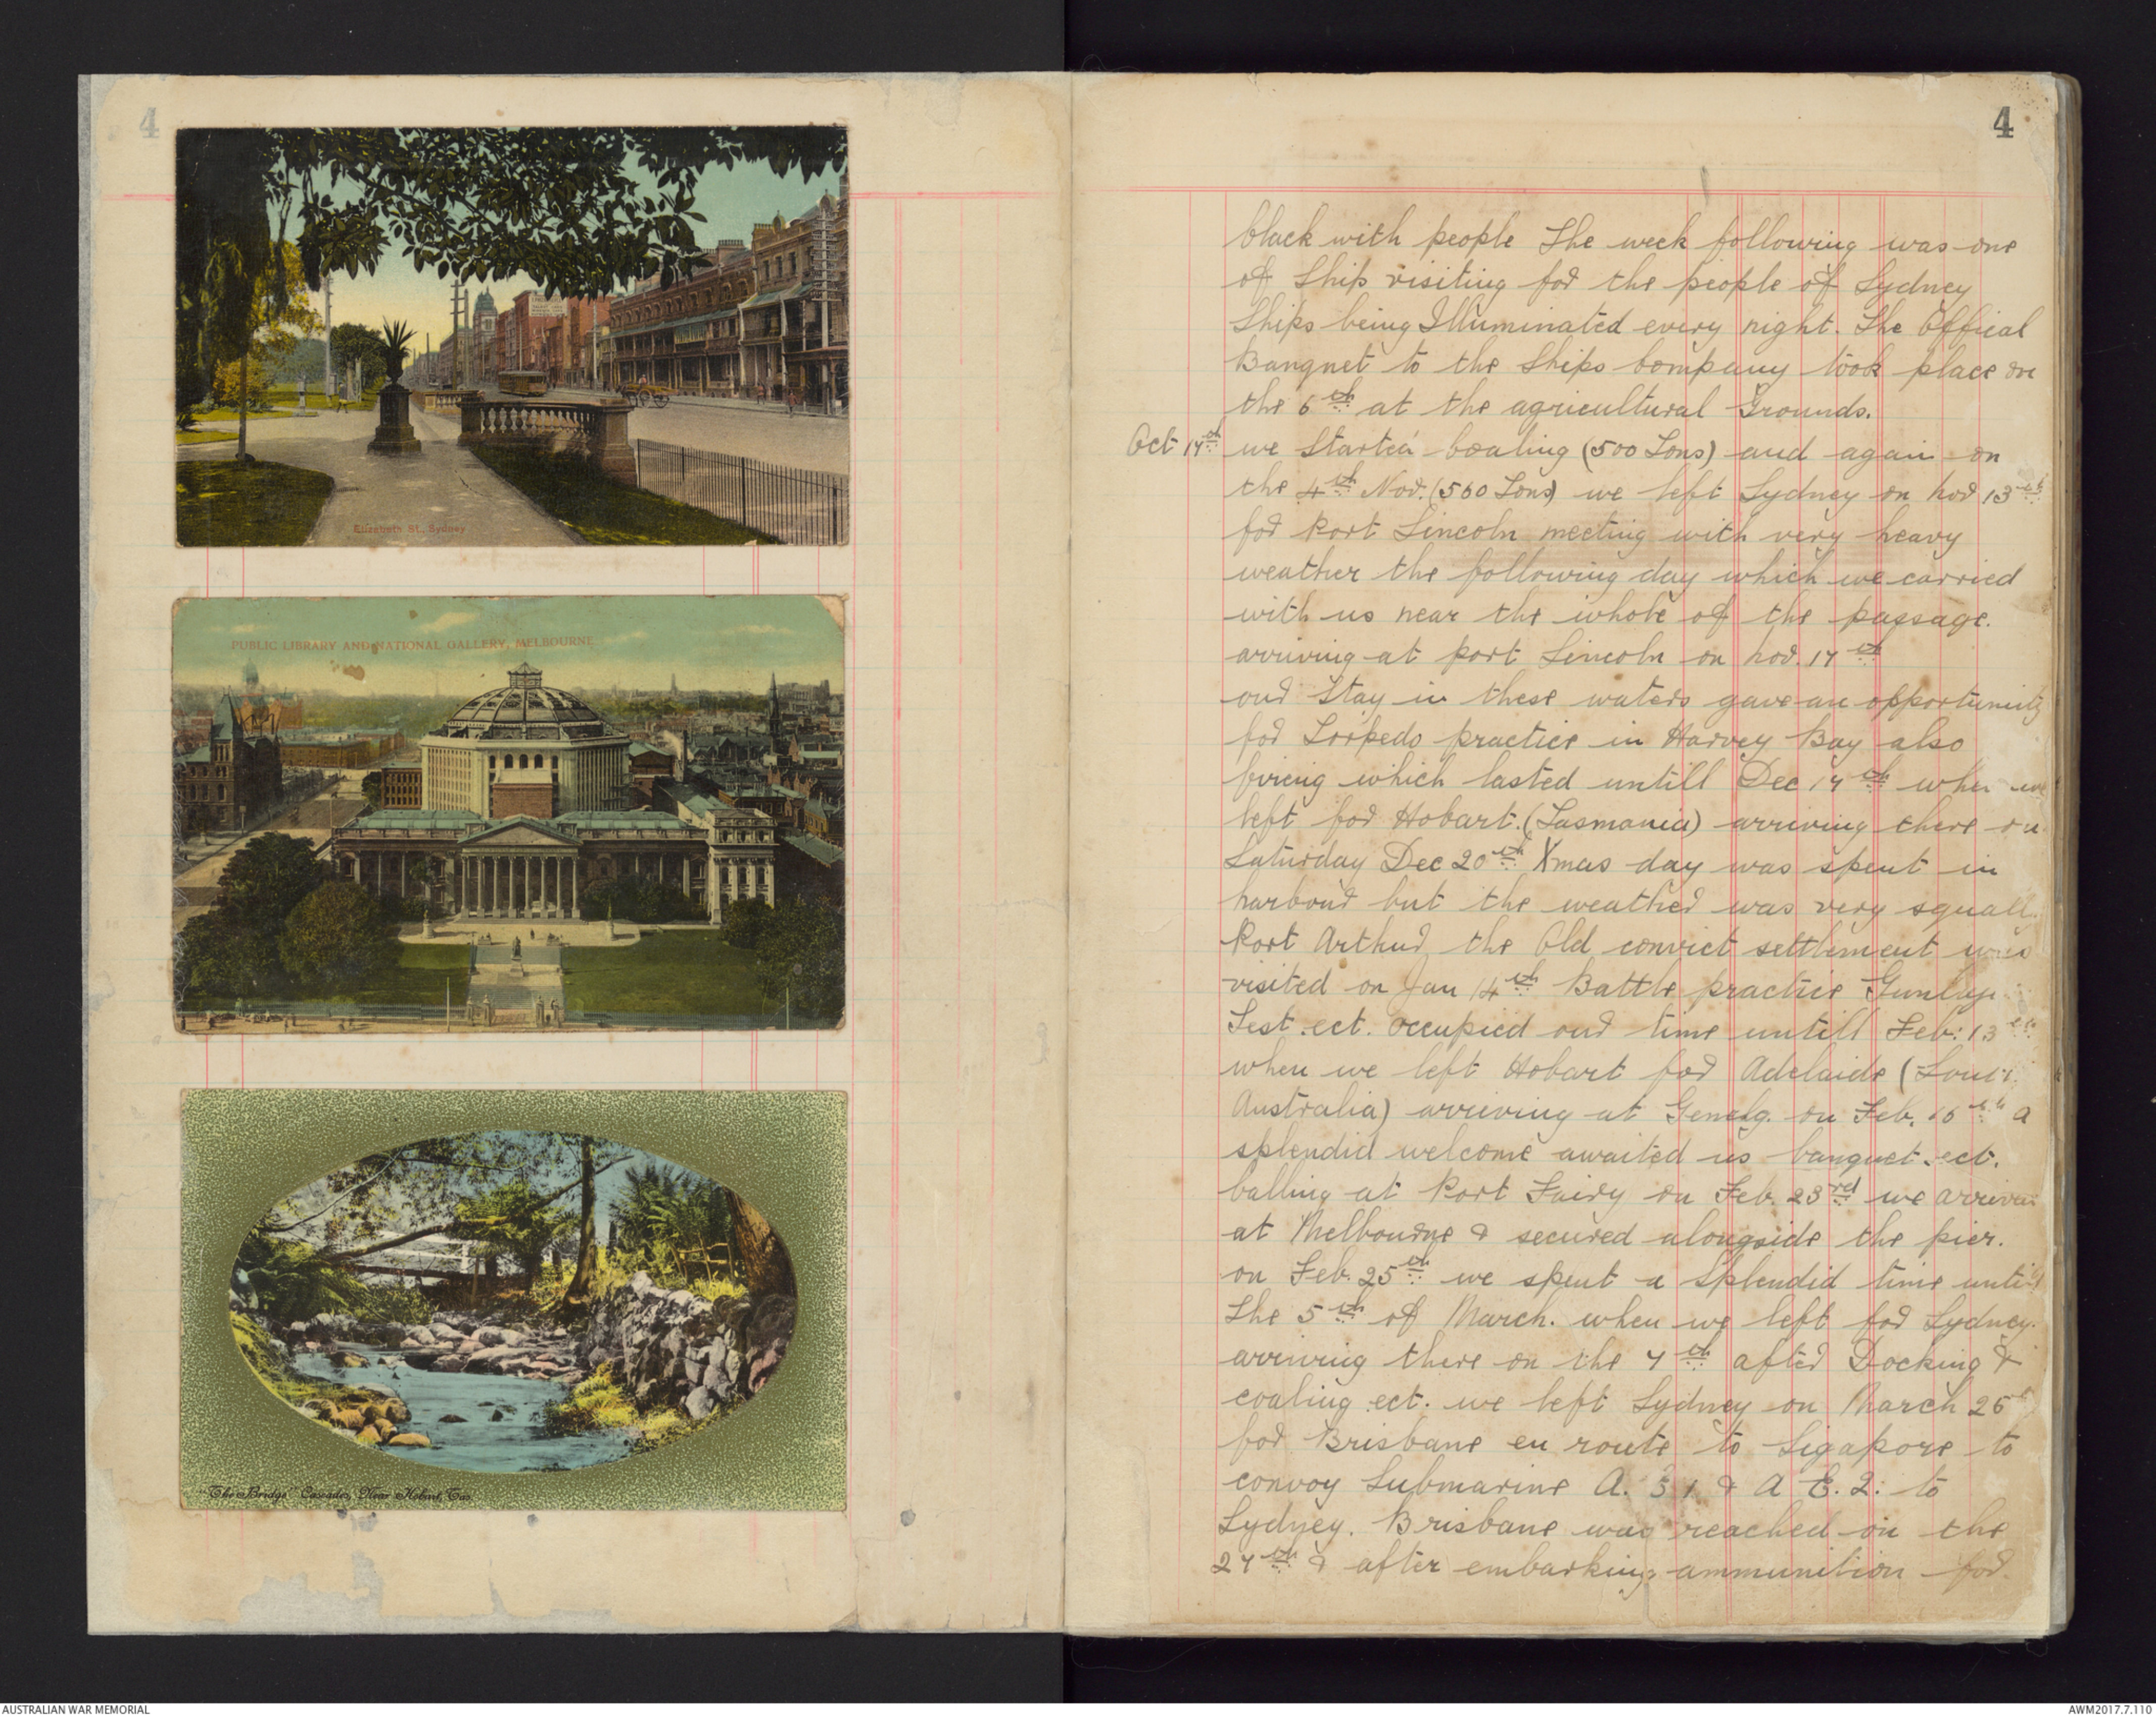 4
Elizabeth St., Sydney
PUBLIC LIBRARY AND NATIONAL GALLERY, MELBOURNE
"The Bridge" Cascades, Near Hobart, Tas
4
black with people The week following was one
of Ship visiting for the people of Sydney
Ships being Illuminated every night. The Offical
Banquet to the Ships Company took place on
the 6th at the agricultural Grounds.
Oct 17th we Started Coaling (500 Tons) and again on
the 4th Nov. (560 Tons) we left Sydney on Nov 13th
for Port Lincoln meeting with very heavy
weather the following day which we carried
with us near the whole of the passage.
arriving at Port Lincoln on Nov. 17th
our Stay in these waters gave an opportunity
for Torpedo practice in Harvey Bay also
fireing which lasted untill Dec 17th when we
left for Hobart. (Tasmania) arriving there on
Saturday Dec 20th Xmas day was spent in
harbour but the weather was very squall
Port Arthur, the Old convict settlement was
visited on Jan 14th Battle practice Gunlay
Test. ect. occupied our time untill Feb: 13th
when we left Hobart for Adelaide (South
Australia) arriving at Genelg. on Feb. 16th a
splendid welcome awaited us banquet. ect.
Calling at Port Fairy on Feb. 23rd we arrived
at Melbourne & secured alongside the pier.
on Feb. 25th we spent a Splendid time until
the 5th of March. when we left for Sydney.
arriving there on the 7th after Docking &
coaling ect. we left Sydney on March 25th
for Brisbane en route to Sigapore to
convoy Submarine A. E 1. & A E. 2: to
Sydney. Brisbane was reached on the
27th & after embarking ammunition for
AUSTRALIAN WAR MEMORIAL
AWM2017.7.110